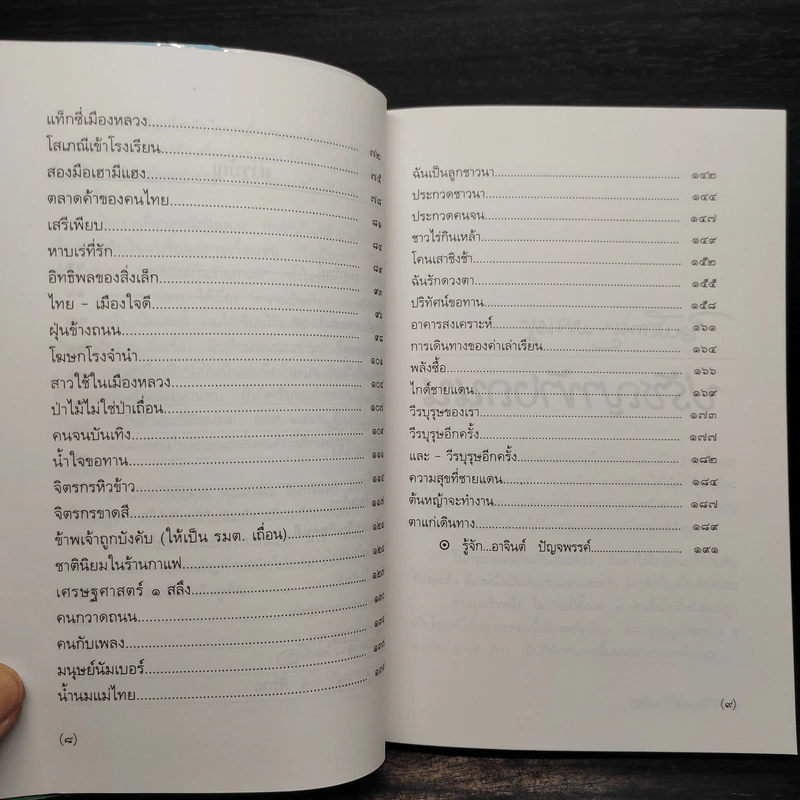 แท็กซี่เมืองหลวง
โสเภณีเข้าโรงเรียน ๗๒
สองมือเฮามีแฮง ๗๕
ตลาดค้าของคนไทย ๗๘
เสรีเพียบ ๘๑
หาบเร่ที่รัก ๘๔
อิทธิพลของสิ่งเล็ก ๘๙
ไทย - เมืองใจดี ๙๓
ฝุ่นข้างถนน ๙๖
โฆษกโรงจำนำ ๙๘
สาวใช้ในเมืองหลวง ๑๐๑
ป่าไม้ไม่ใช่ป่าเถื่อน ๑๐๔
คนจนบันเทิง ๑๐๗
น้ำใจขอทาน ๑๐๙
จิตรกรหิวข้าว ๑๑๑
จิตรกรขาดสี ๑๑๔
ข้าพเจ้าถูกบังคับ (ให้เป็น รมต. เถื่อน) ๑๑๗
ชาตินิยมในร้านกาแฟ ๑๒๑
เศรษฐศาสตร์ ๑ สลึง ๑๒๔
คนกวาดถนน ๑๒๗
คนกับเพลง
มนุษย์นัมเบอร์
น้ำนมแม่ไทย
(๘)
ฉันเป็นลูกชาวนา ๑๔๒
ประกวดชาวนา ๑๔๔
ประกวดคนจน ๑๔๗
ชาวไร่กินเหล้า ๑๔๙
โคนเสาชิงช้า ๑๕๒
ฉันรักดวงตา ๑๕๕
ปริทัศน์ขอทาน ๑๕๘
อาคารสงเคราะห์ ๑๖๑
การเดินทางของค่าเล่าเรียน ๑๖๔
พลังซื้อ ๑๖๖
ไกด์ชายแดน ๑๖๙
วีรบุรุษของเรา ๑๗๓
วีรบุรุษอีกครั้ง ๑๗๗
และ - วีรบุรุษอีกครั้ง ๑๘๒
ความสุขที่ชายแดน ๑๘๔
ต้นหญ้าจะทำงาน ๑๘๗
ตาแก่เดินทาง ๑๘๙
รู้จัก...อาจินต์ ปัญจพรรค์ ๑๙๑
(๙)